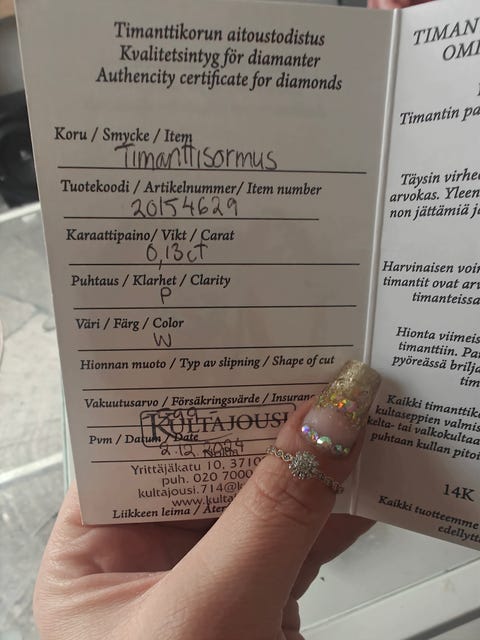 Timanttikorun aitoustodistus
Kvalitetsintyg för diamanter
Authencity certificate for diamonds
Koru / Smycke / Item
Timanttisormus
Tuotekoodi / Artikelnummer/ Item number
20154629
Karaattipaino/ Vikt / Carat
0,13ct
Puhtaus / Klarhet / Clarity
P
Väri / Färg / Color
W
Hionnan muoto / Typ av slipning / Shape of cut
Vakuutusarvo / Försäkringsvärde /
KULTAJOUSI
Pvm / Datum / Date
2.12.2024
Yrittäjäkatu 10,
puh. 020 7000
kultajousi.714@
Liikkeen leima /
TIMAN
Timantin
Täysin
arvokas.
non jättämiä
Harvinaisen
timantit ovat
timanteissa
Hionta
timanttiin.
pyöreässä
Kaikki
kultaseppien
kelta- tai
puhtaan kullan
14K
Kaikki tuotteemme